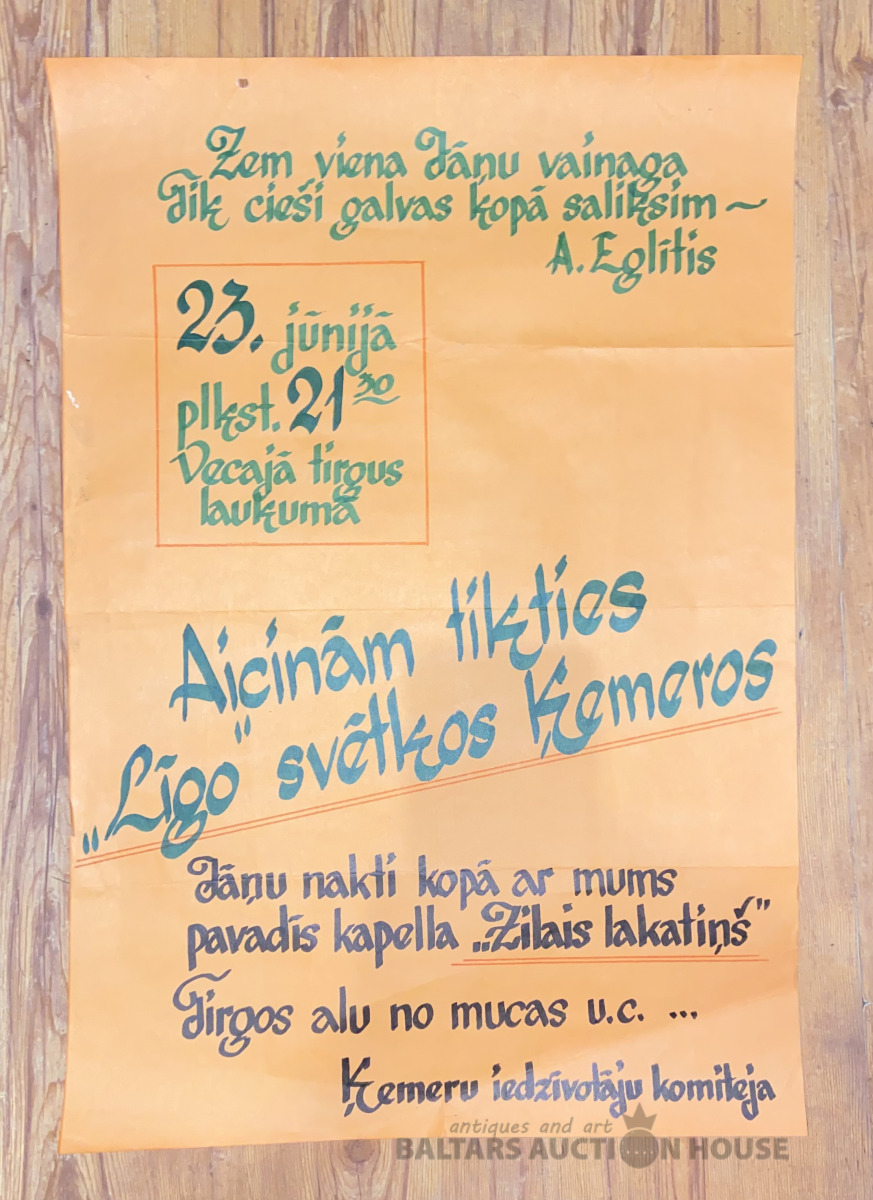 Zem viena Jāņu vainaga
Tik cieši galvas kopā saliksim ~
A. Eglītis
23. jūnijā
plkst. 21 30
Vecajā tirgus
laukumā
Aicinām tikties
„Līgo" svētkos Ķemeros
Jāņu nakti kopā ar mums
pavadīs kapella „Zilais lakatiņš"
Tirgos alu no mucas u.c. ...
Ķemeru iedzīvotāju komiteja
antiques and art
BALTARS AUCTION HOUSE